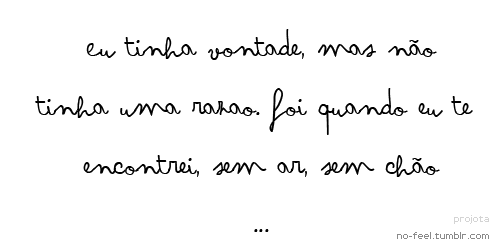 eu tinha vontade, mas não
tinha uma razao. Foi quando eu te
encontrei, sem ar, sem chão
...
projota
no-feel.tumblr.com